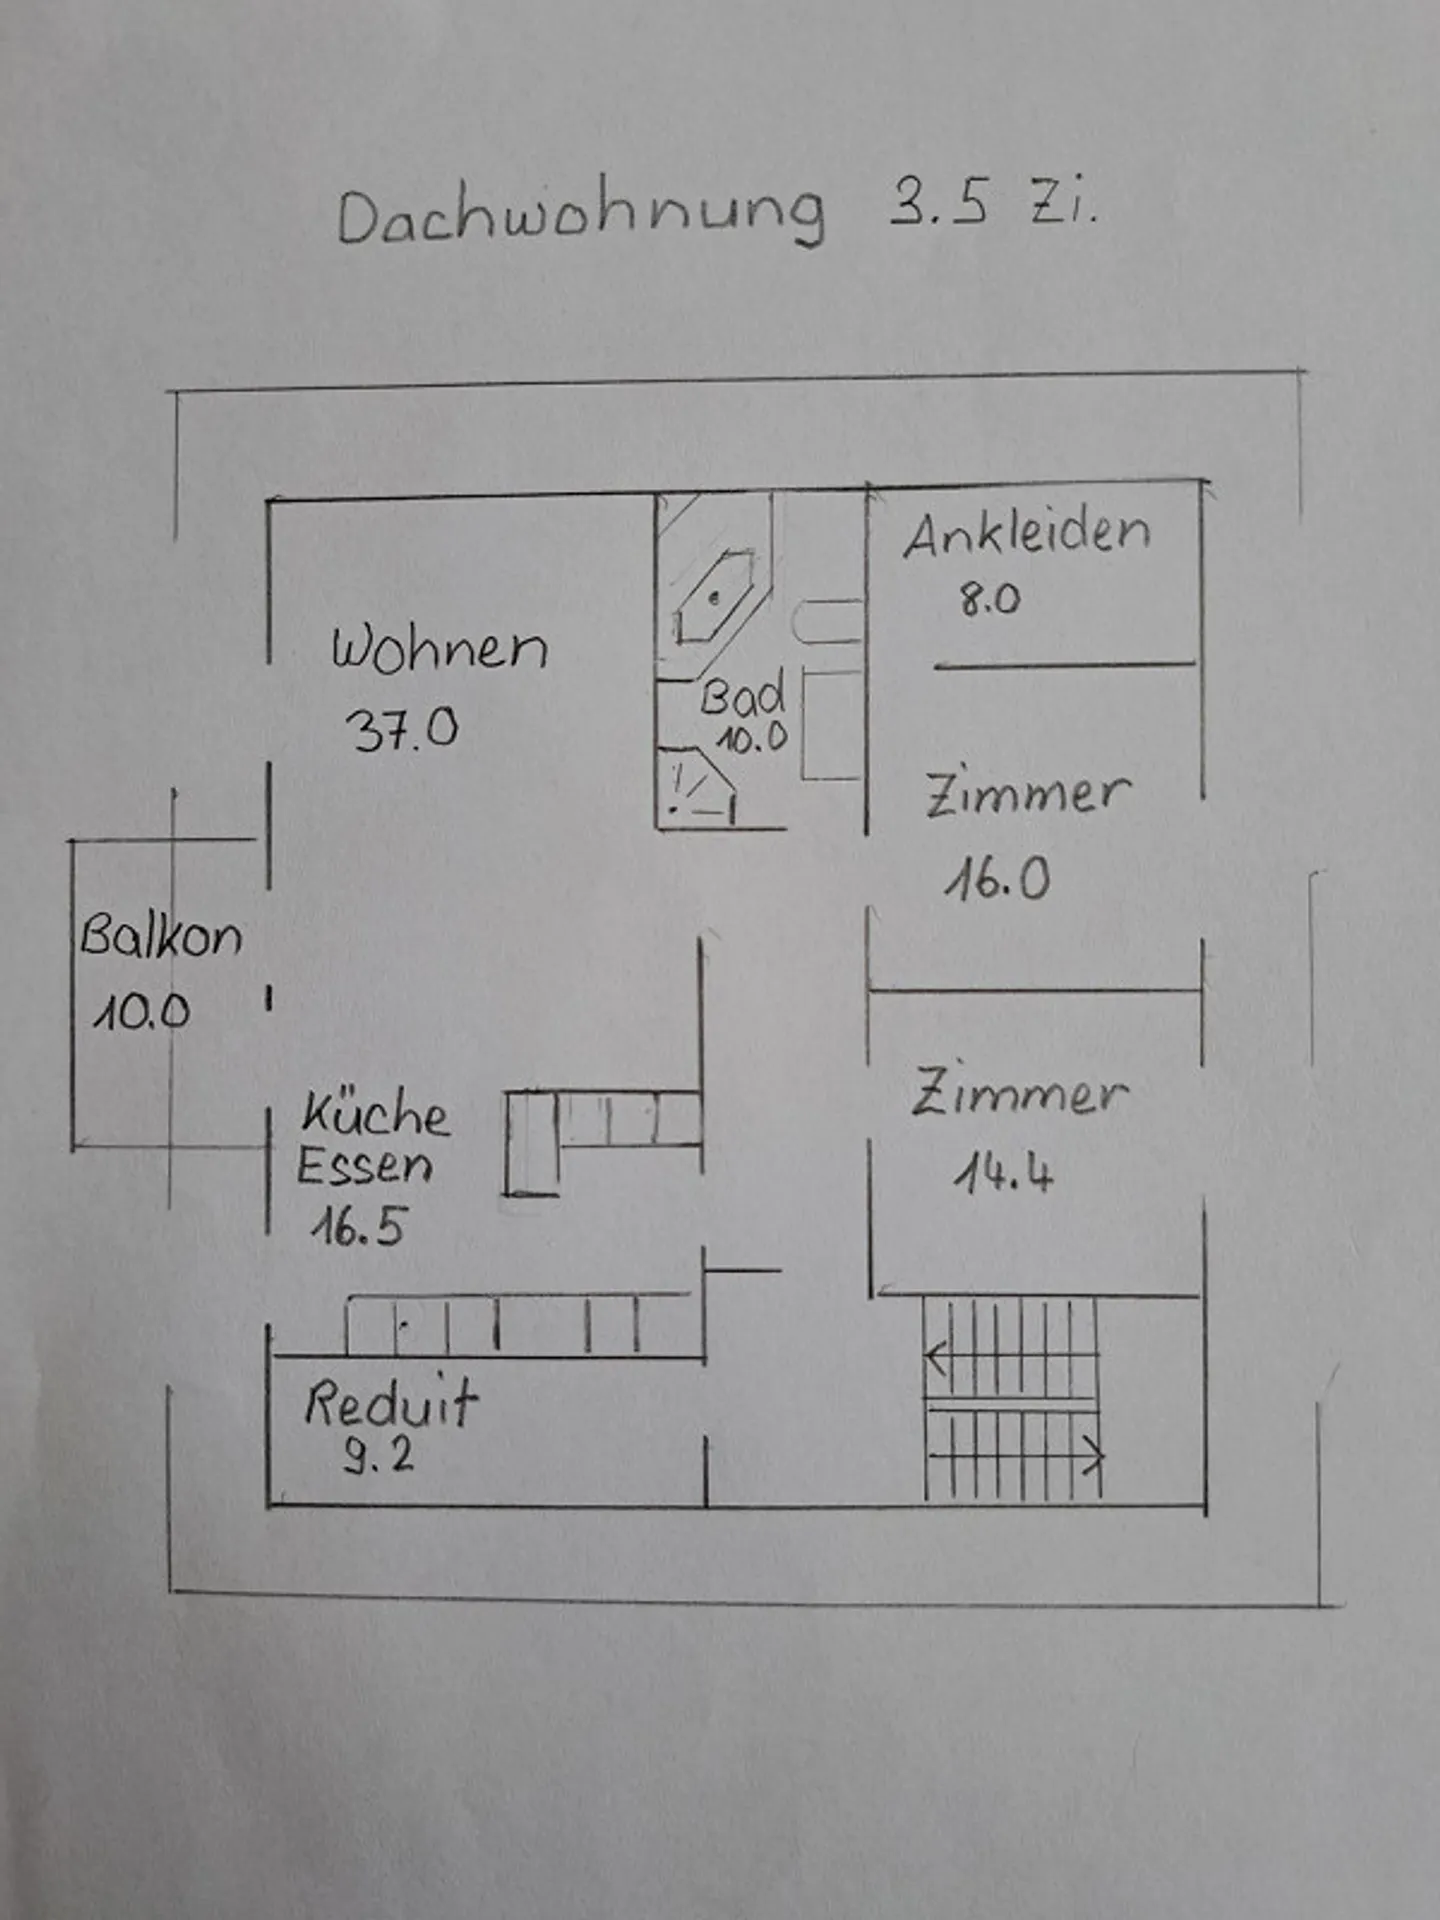 Dachwohnung 3.5 Zi.
Ankleiden
8.0
Wohnen
37.0
Bad
10.0
Zimmer
16.0
Balkon
10.0
Küche
Essen
16.5
Zimmer
14.4
Reduit
9.2